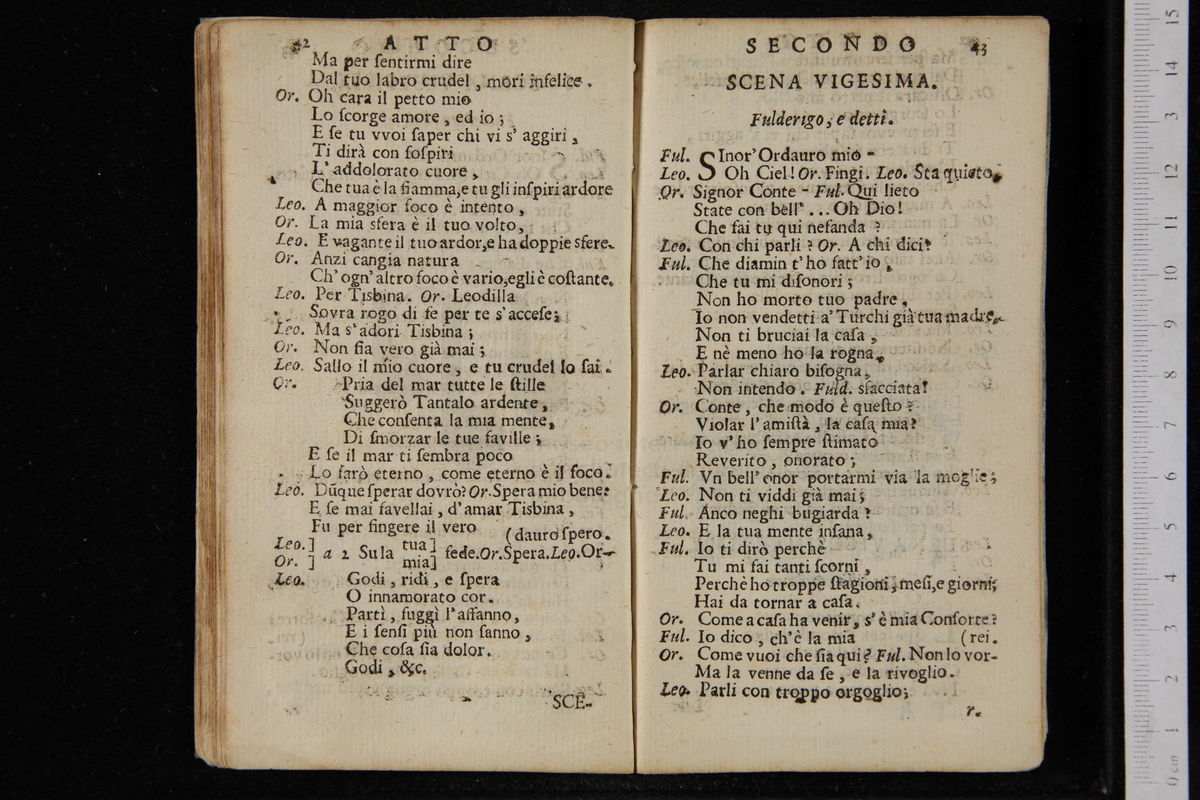 42 ATTO
Ma per ſentirmi dire
Dal tuo labro crudel, mori infelice.
Or. Oh cara il petto mio
Lo ſcorge amore, ed io;
E ſe tu vvoi ſaper chi vi s' aggiri,
Ti dirà con ſoſpiri
L' addolorato cuore,
Che tua è la fiamma, e tu gli inſpiri ardore
Leo. A maggior foco è intento,
Or. La mia sfera è il tuo volto,
Leo. E vagante il tuo ardor, e ha doppie sfere.
Or. Anzi cangia natura
Ch' ogn' altro foco è vario, egli è coſtante.
Leo. Per Tisbina. Or. Leodilla
Sovra rogo di fe per te s' acceſe;
Leo. Ma s'adori Tisbina;
Or. Non fia vero già mai;
Leo. Sallo il mio cuore, e tu crudel lo ſai.
Or. Pria del mar tutte le ſtille
Suggerò Tantalo ardente,
Che conſenta la mia mente,
Di ſmorzar le tue faville;
E ſe il mar ti ſembra poco
Lo farò eterno, come eterno è il foco.
Leo. Dũque ſperar dovrò? Or. Spera mio bene.
E ſe mai favellai, d'amar Tisbina,
Fu per fingere il vero (dauro ſpero.
Leo.] Or.] a 2 Su la tua] mia] fede. Or. Spera. Leo. Or-
Leo. Godi, ridi, e ſpera
O innamorato cor.
Partì, fuggì l'affanno,
E i ſenſi più non ſanno,
Che coſa ſia dolor.
Godi, &c.
SCE-
SECONDO 43
SCENA VIGESIMA.
Fulderigo, e detti.
Ful. SInor' Ordauro mio -
Leo. Oh Ciel! Or. Fingi. Leo. Sta quieto,
Or. Signor Conte - Ful. Qui lieto
State con bell' ... Oh Dio!
Che fai tu qui nefanda ?
Leo. Con chi parli ? Or. A chi dici?
Ful. Che diamin t' ho fatt' io,
Che tu mi diſonori;
Non ho morto tuo padre,
Io non vendetti a' Turchi già tua madre,
Non ti bruciai la caſa,
E nè meno ho la rogna,
Leo. Parlar chiaro biſogna,
Non intendo. Fuld. sfacciata!
Or. Conte, che modo è queſto ?
Violar l' amiſtà, la caſa mia?
Io v' ho ſempre ſtimato
Reverito, onorato;
Ful. Vn bell' onor portarmi via la moglie;
Leo. Non ti viddi già mai;
Ful. Anco neghi bugiarda ?
Leo. E la tua mente inſana,
Ful. Io ti dirò perchè
Tu mi fai tanti ſcorni,
Perchè ho troppe ſtagioni, meſi, e giorni;
Hai da tornar a caſa.
Or. Come a caſa ha venir, s' è mia Conſorte?
Ful. Io dico, ch'è la mia (rei.
Or. Come vuoi che ſia qui? Ful. Non lo vor-
Ma la venne da ſe, e la rivoglio.
Leo. Parli con troppo orgoglio;